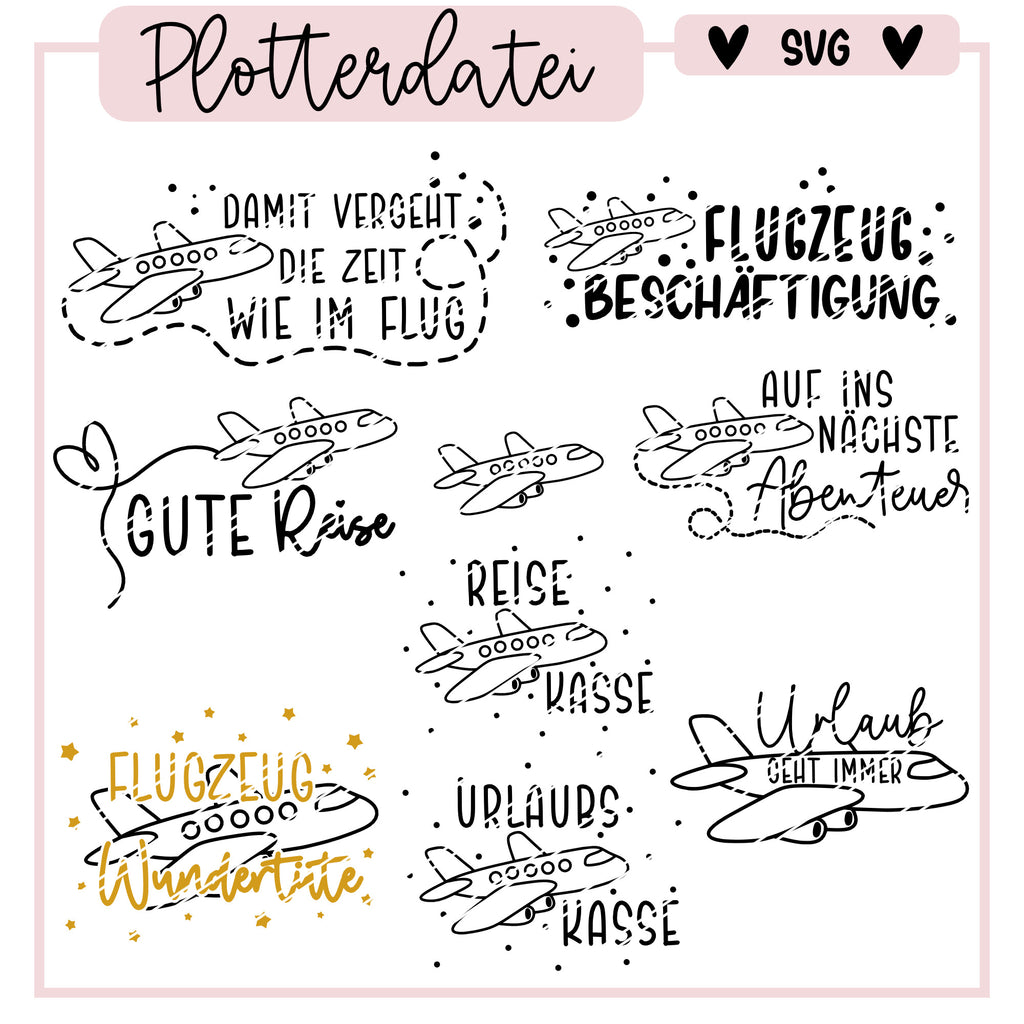 Plotterdatei
SVG
DAMIT VERGEHT
DIE ZEIT
WIE IM FLUG
FLUGZEUG
BESCHÄFTIGUNG
GUTE Reise
AUF INS
NÄCHSTE
Abenteuer
REISE
KASSE
FLUGZEUG
Wundertüte
URLAUBS
KASSE
Urlaub
GEHT IMMER